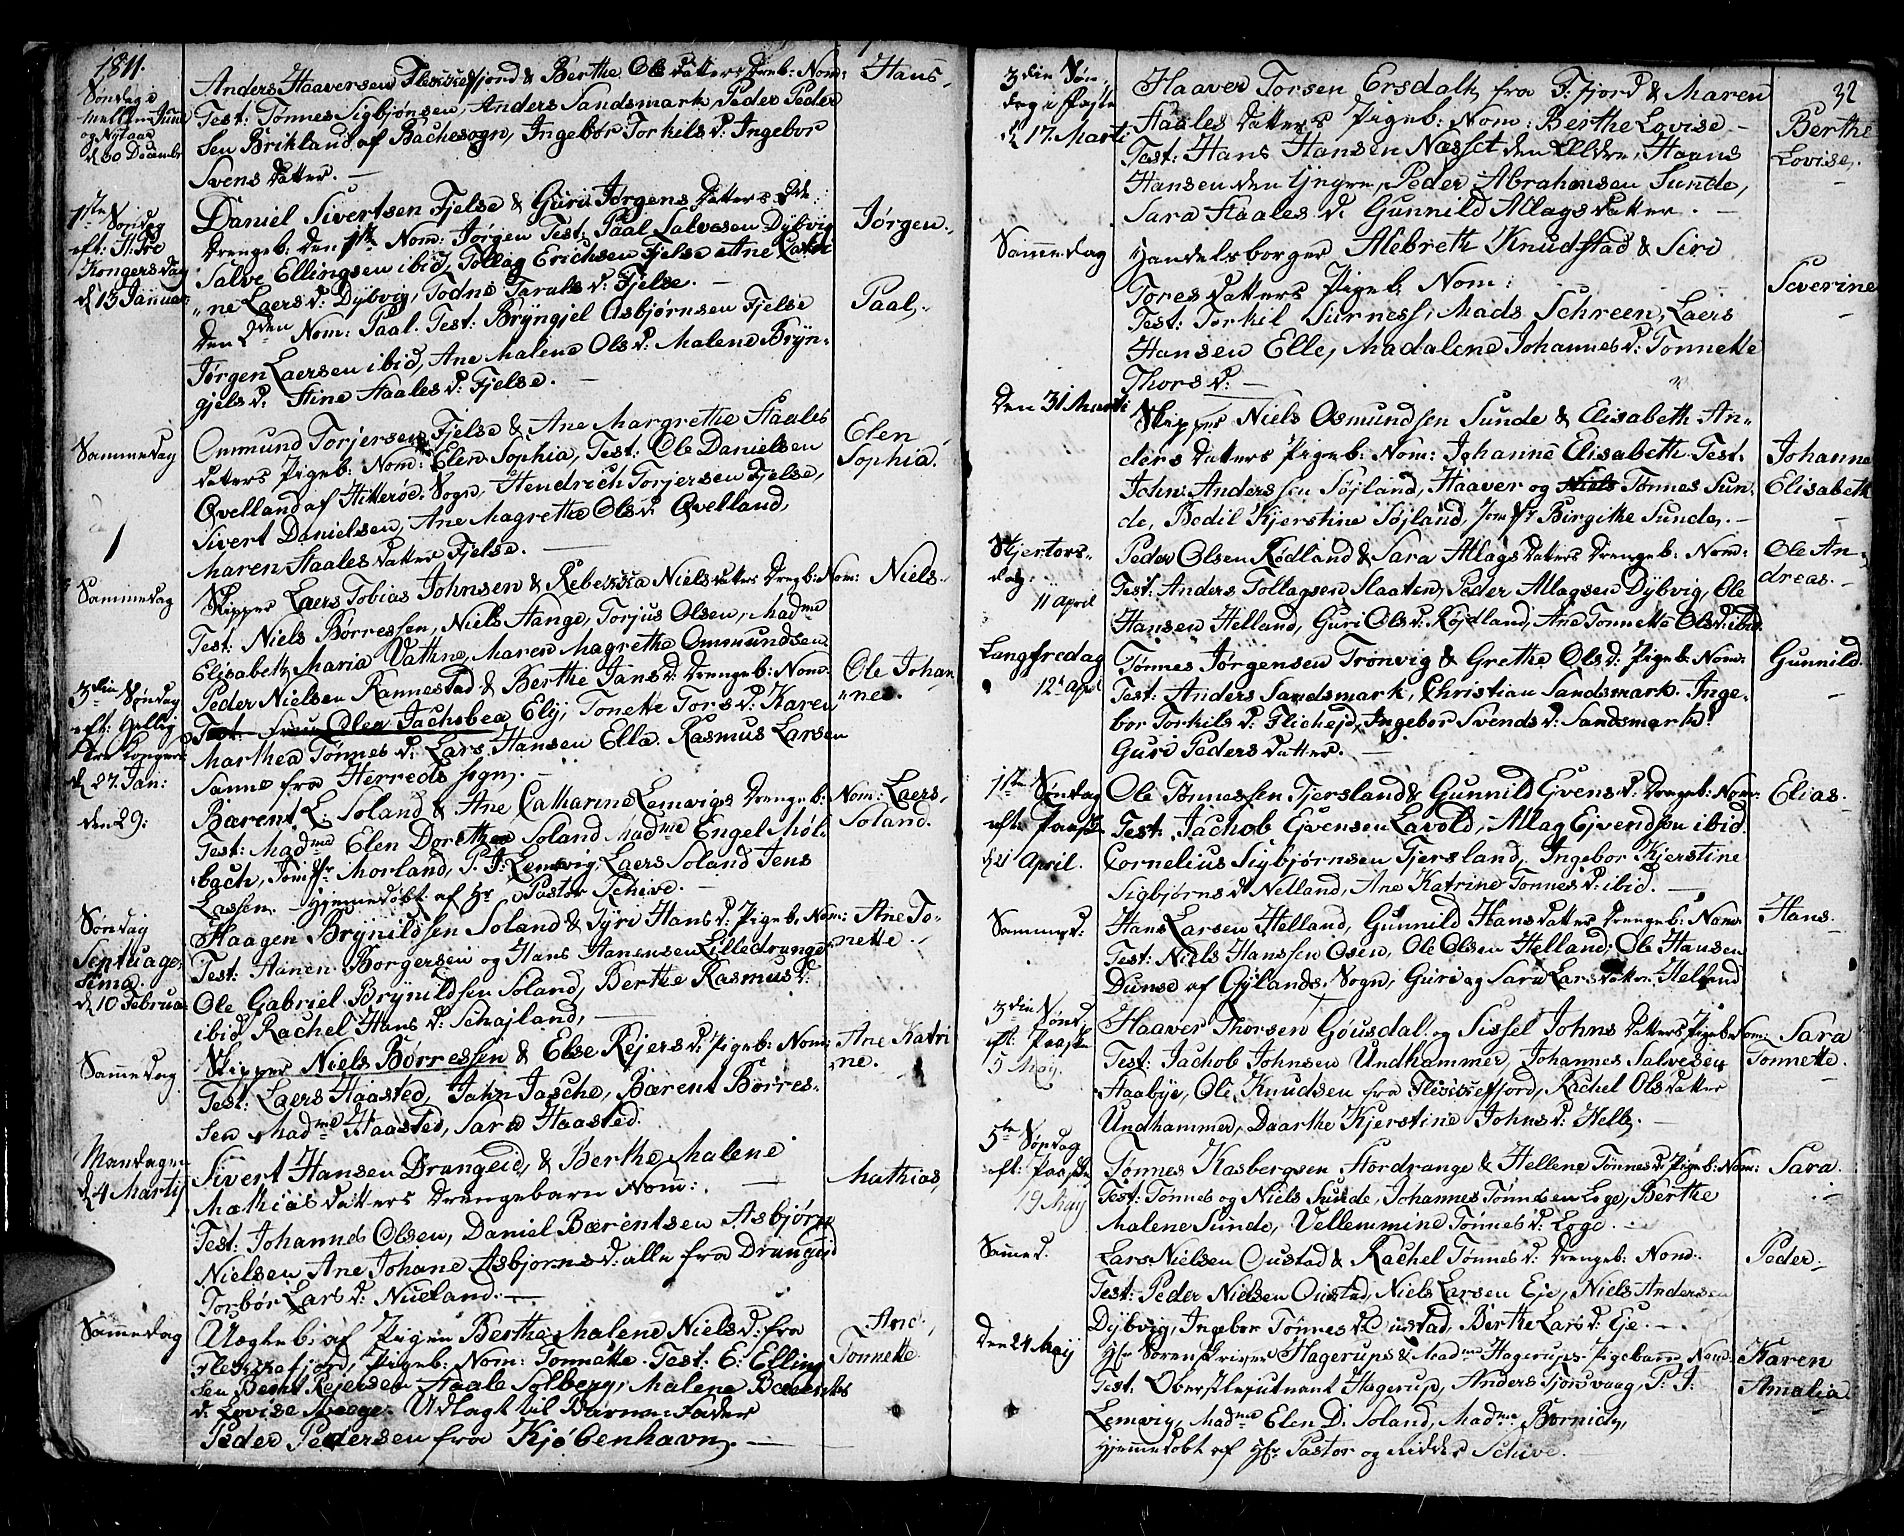 1811.
Søndag i
mellem Juul
og Nytaar
d 30 Decembr
Anders Haaversen Flechefiord & Berthe Olsdatters Pigeb: Nom:
Hans
Test: Tønnes Sigbjønsen, Anders Sandsmark, Peder Peder
sen Brikland af Bachesogn, Ingebor Torkilsd: Ingebor
Svensdatter. —
1ste Søndag
eft: H. Tre
Kongersdag
d 13 Januar
Daniel Sivertsen Fjelse & Guri Jørgensdatters 2de
Drengeb: den 1ste Nom: Jørgen Test: Paal Salvesen Dybvig
Jørgen.
Salve Ellingsen ibid, Tollag Erichsen Fjelse Ane Catri
ne Laersd: Dybvig, Todne Taralsd: Fjelse. —
den 2den Nom: Paal. Test: Bryngjel Asbjørnsen Fjelse
Paal,
Jørgen Laersen ibid, Ane Malene Olsd: Malene Bryn-
gjelsd: Stine Staalesd: Fjelse. —
Sammedag
Ommund Torjersen Fjelse & Ane Margrethe Staales
datters Pigeb: Nom: Elen Sophia, Test: Ole Danielsen
Elen
Sophia.
Qvelland af Hitterøe Sogn, Hendrich Torjersen Fjelse,
Sivert Danielsen, Ane Magrethe Olsd Qvelland,
Maren Staalesdatter Fjelse. —
Sammedag
Skipper Laers Tobias Johnsen & Rebecca Nielsdatters Drengb: Nom:
Niels
Test: Niels Børressen, Niels Hange, Torjus Olsen, Madme
Elisabeth Maria Vathne, Maren Magrethe Ommundsen
3die Søndag
eft: Hellig
tre Konger
d 27 Jan:
Peder Nielsen Rannestad & Berthe Jansd: Drengeb: Nom:
Ole Johan
nes.
Test: Frue Elen Jachobea Ely, Tonette Torsd: Karen
Marthea Tønnesd: Lars Hansen Ella. Rasmus Larsen
Sanne fra Herreds sogn. —
den 29:
Bærent L: Soland & Ane Catharine Lemvigs Drengeb: Nom: Laers
Soland.
Test: Madme Elen Dorethea Soland Madme Engel Møl
bach, Jomfr Morland, P. J: Lemvig, Laers Soland Jens
Lassen. — Hjemmedøbt af Hr Pastor Schive. —
Søndag
Septuage
sima
d 10 Februar
Haagen Brynildsen Soland & Syre Hansd: Pigeb: Nom:
Ane To-
nette.
Test: Aanen Borgersen og Hans Aanensen Lilledrange
Ole Gabriel Brynildsen Soland, Berthe Rasmusd:
ibid Rachel Hansd: Schajland, —
Sammedag
Skipper Niels Børressen & Else Rejersd: Pigeb: Nom:
Ane Katri
ne.
Test: Laers Haasted, John Jasche, Bærent Børres-
sen Madme Haasted, Sara Haasted.
Mandagen
d 4 Martij
Sivert Hansen Drangeid, & Berthe Malene
Mathiasdatters Drengebarn Nom: —
Mathias,
Test: Johannes Olsen, Daniel Bærentsen Asbjørn
Nielsen Ane Johane Asbjornsd: alle fra Drangeid
Torbør Larsd: Nueland. —
Sammedag
Uægte b: af Pigen Berthe Malene Nielsd: fra
Ane
Flechefiord, Pigeb: Nom: Tonnette. Test: E: Elling
Tonnette
sen Bernt Rejersen Staale Solberg, Malene Baerents
d: Lovise Udlagt til Barne-Fader
Peder Pedersen fra Kjøbenhavn. —
32
3die Søn-
dag i Faste
d 17. Marti
Haaver Torsen Ersdal fra F:fjord & Maren
Staalesdatters Pigeb: Nom: Berthe Lovise —
Berthe
Lovise,
Test: Hans Hansen Næsset den Ældre, Haans
Hansen den Yngre, Peder Abrahamsen Sunde,
Sara Staalesd: Gunnild Atlagsdatter. —
Sammedag
Handelsborger Alebreth Knudstad & Siri
Toresdatters Pigeb. Nom:
Severine
Test: Torkil Surness, Mads Schreen, Laers
Hansen Elle, Madalene Johannesd: Tonnette
Thorsd: —
den 31 Marti
Skipper Niels Osmundsen Sunde & Elisabeth An-
dersdatters Pigeb: Nom: Johanne Elisabeth Test:
Johanne
Elisabeth
John Anderssen Søjland, Haaver og Niels Tønnes Sun-
de, Bodil Kjerstine Søjland, Jomfr Birgithe Sunde. —
Skjertors-
dag.
11 April
Peder Olsen Rødland & Sara Atlagsdatters Drengeb: Nom:
Ole An-
dreas.
Test: Anders Tollagsen Slaaten, Peder Atlagsen Dybvig, Ole
Hansen Helland, Guri Olsd: Røjdland, Ane Tonnette Olsd: ibid.
Langfredag
12 April
Tønnes Jørgensen Tronvig & Grethe Olsd: Pigeb: Nom:
Gunnild.
Test: Anders Sandsmark, Christian Sandsmark. Inge-
bor Torkilsd: Flichejd, Ingebor Svendsd: Sandsmark.
Guri Pedersdatter. —
1ste Søndag
eft: Paaske
d 21 April.
Ole Tønnessen Tjersland & Gunnild Ejvensd: Drengeb: Nom:
Elias.
Test: Jachob Ejvensen Lavold, Atlag Ejvendsen ibid.
Cornelius Sigbjørnsen Tjersland, Ingebor Kjerstine
Sigbjørnsd: Nelland, Ane Katrine Tonnesd: ibid. —
Sammed:
Hans Larsen Helland, Gunnild Hansdatters Drengeb: Nom:
Hans.
Test: Niels Hanssen Osen, Ole Olsen Helland, Ole Hansen
Dunse af Gylands Sogn, Guri og Sara Larsdatter Helland
3die Sønd
eft: Paaske
5 May.
Haaver Thorsen Gousdal og Sissel Johnsdatters Pigeb: Nom:
Sara
Tonnette.
Test: Jachob Johnsen Undhammer, Johannes Salvesen
Haabye, Ole Knudsen fra Flechefjord, Rachel Olsdatter
Undhammer, Daarthe Kjerstine Johnsd: Helle. —
5te Søndag
eft: Paaske
19 May
Tønnes Kasbergsen Stordrange & Hellene Tønnesd: Pigeb: Nom:
Sara.
Test: Tønnes og Niels Sunde, Johannes Tønnesen Loge, Berthe
Malene Sunde, Vellemmine Tønnesd: Loge. —
Sammed.
Lars Nielsen Oustad & Rachel Tønnesd: Drengeb: Nom:
Peder,
Test: Peder Nielsen Oustad, Niels Larsen Eje, Niels Andersen
Dybvig, Ingebor Tønnesd: Oustad, Berthe Larsd: Eje. —
Den 24 Maij
Hr Soren Hagerups & Madme Hagerups Pigebarn Nom:
Karen
Test: Oberstlieutnant Hagerup, Anders Sjonsvaag, P: J:
Amalia
Lemvig, Madme Elen D: Soland, Madme Bornich,
Hjemmedøbt af Hr Pastor og Ridder Schive.